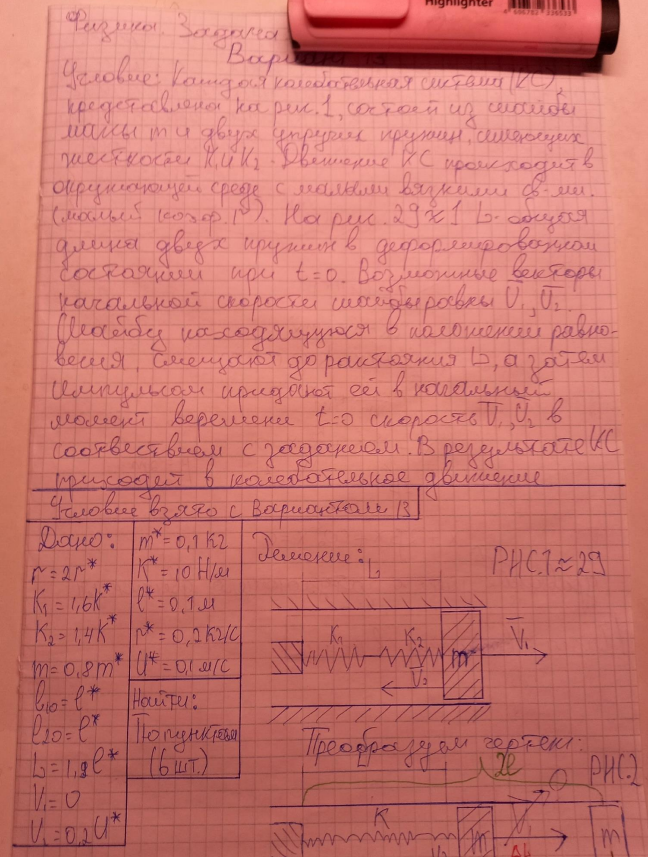 Highlighter
Физика. Задача
Вариант 13
Условие: Каждая колебательная система (КС),
представленная на рис. 1, состоит из шайбы
массы m и двух упругих пружин, имеющих
жесткости K₁ и K₂. Движение КС происходит в
окружающей среде с малыми вязкими св-ми.
(малый коэф. r). На рис. 29≈1 L- общая
длина двух пружин в деформированном
состоянии при t=0. Возможные векторы
начальной скорости шайбы равны V̅₁, V̅₂.
Шайбу находящуюся в положении равно-
весия, смещают до растояния L, а затем
импульсом придают ей в начальный
момент веремени t=0 скорость V̅₁, V̅₂ в
соотвествием с заданием. В результате КС
приходит в колебательное движение
Условие взято с Вариантом 13
Дано:
r=2r*
K₁=1,6K*
K₂=1,4K*
m=0,8m*
l₁₀=l*
l₂₀=l*
V₁=0
V₁=0,2U*
m*=0,1 кг
K*=10 Н/м
l*=0,1 м
r*=0,2 кг/с
U*=0,1 м/с
Найти:
По пунктам
(6 шт.)
Решение:
РИС.1≈29
L
K₁ K₂ m V̅₁
V̅₂
Преобразуем чертеж:
2l
РИС.2
K m V̅₁ m
ΔL